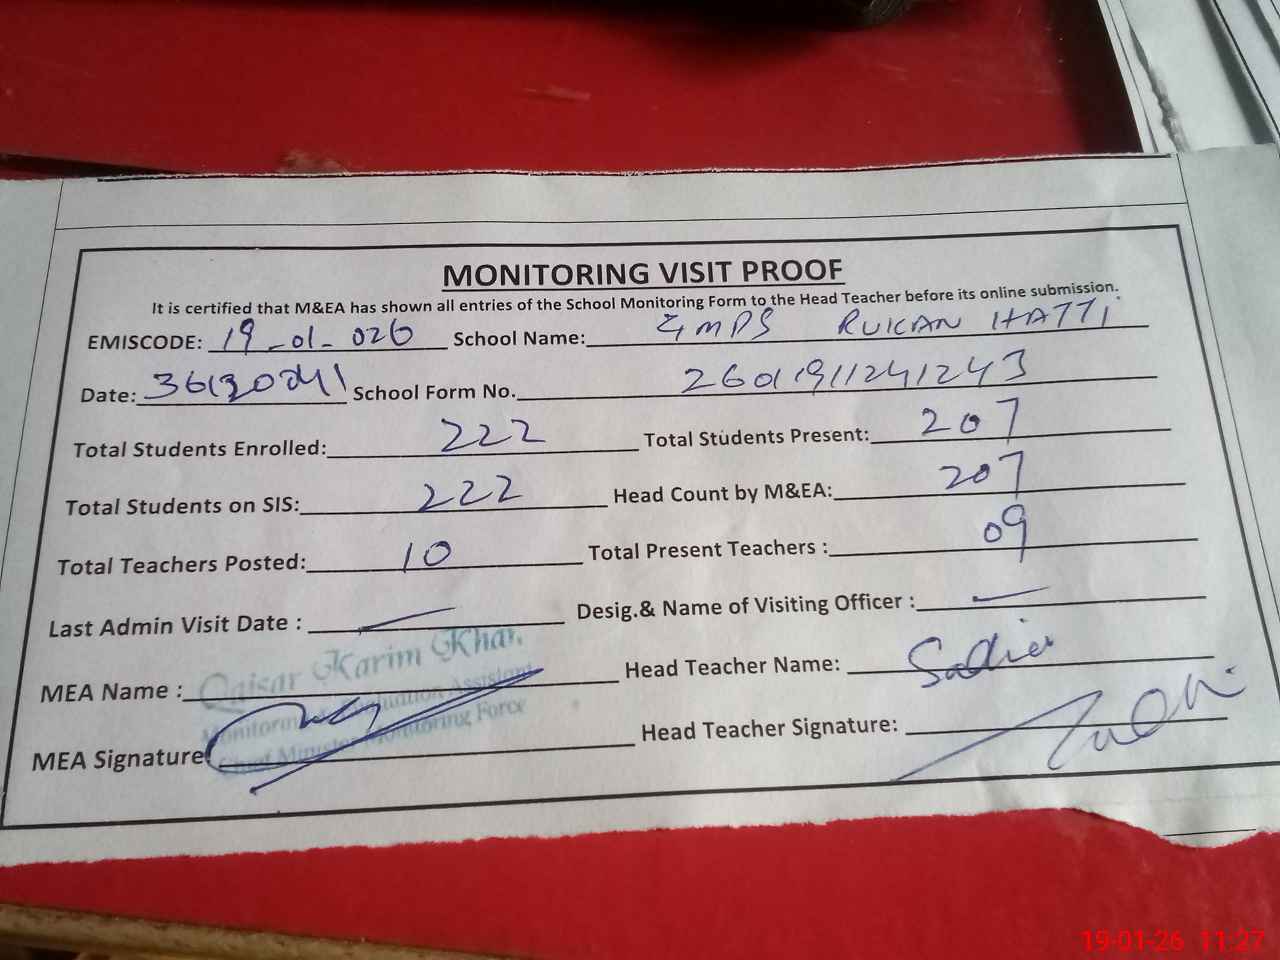 MONITORING VISIT PROOF
It is certified that M&EA has shown all entries of the School Monitoring Form to the Head Teacher before its online submission.
EMISCODE: 19-01-026 School Name: GMPS RUKAN HATTI
Date: School Form No. 2601911241243
Total Students Enrolled: 222 Total Students Present: 207
Total Students on SIS: 222 Head Count by M&EA: 207
Total Teachers Posted: 10 Total Present Teachers : 09
Last Admin Visit Date : — Desig.& Name of Visiting Officer : —
MEA Name : Qaisar Karim Khan Head Teacher Name: Sadia
Monitoring & Evaluation Assistant
MEA Signature Head Teacher Signature:
Chief Minister Monitoring Force
19-01-26 11:27